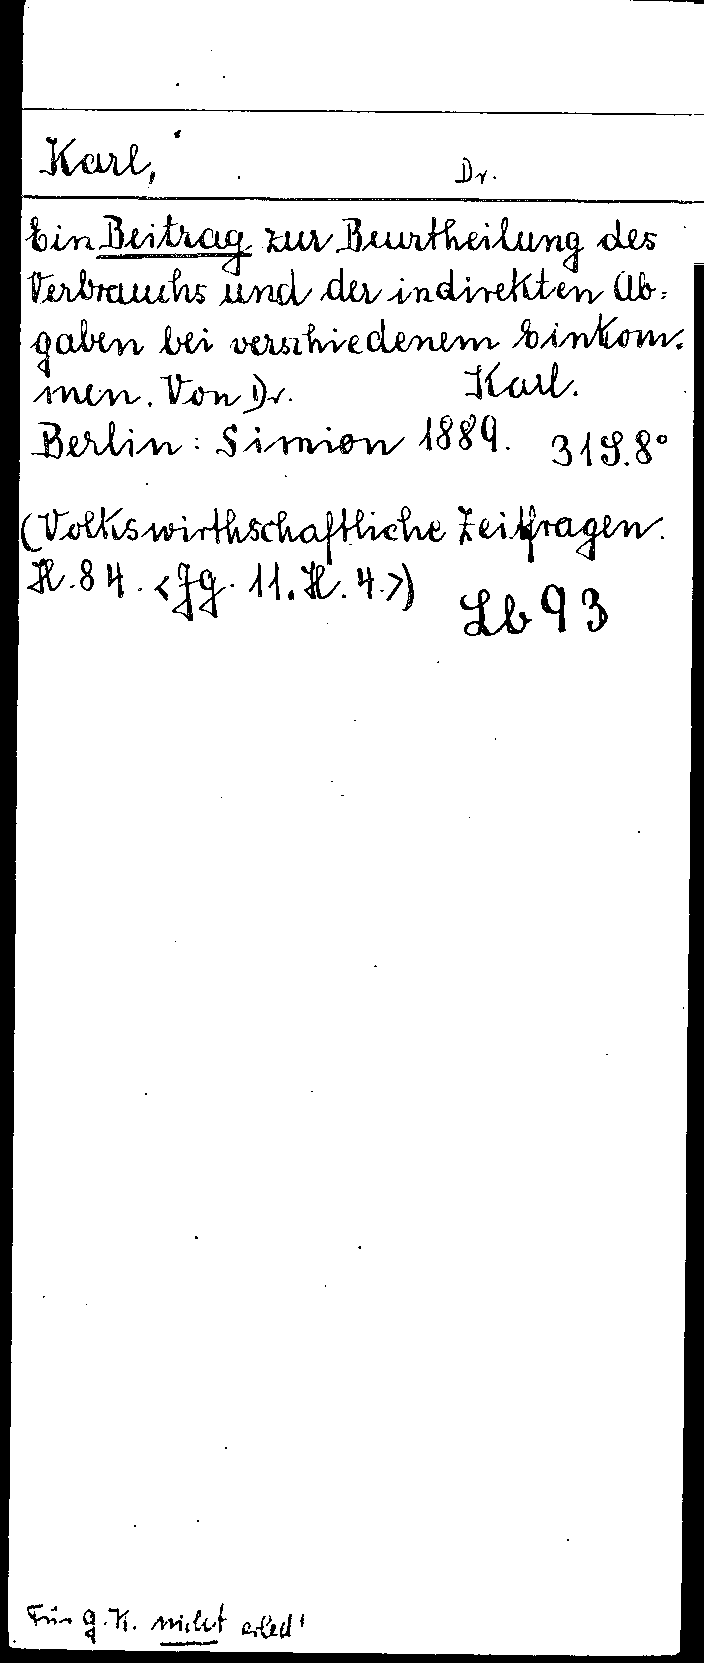 Karl, Dr.
Ein Beitrag zur Beurtheilung des
Verbrauchs und der indirekten Ab-
gaben bei verschiedenem Einkom-
men. Von Dr. Karl.
Berlin: Simion 1889. 31 S. 8°
(Volkswirthschaftliche Zeitfragen.
H. 84. <Jg. 11. H. 4.>)
Lb 93
Für g. K. nicht erled!